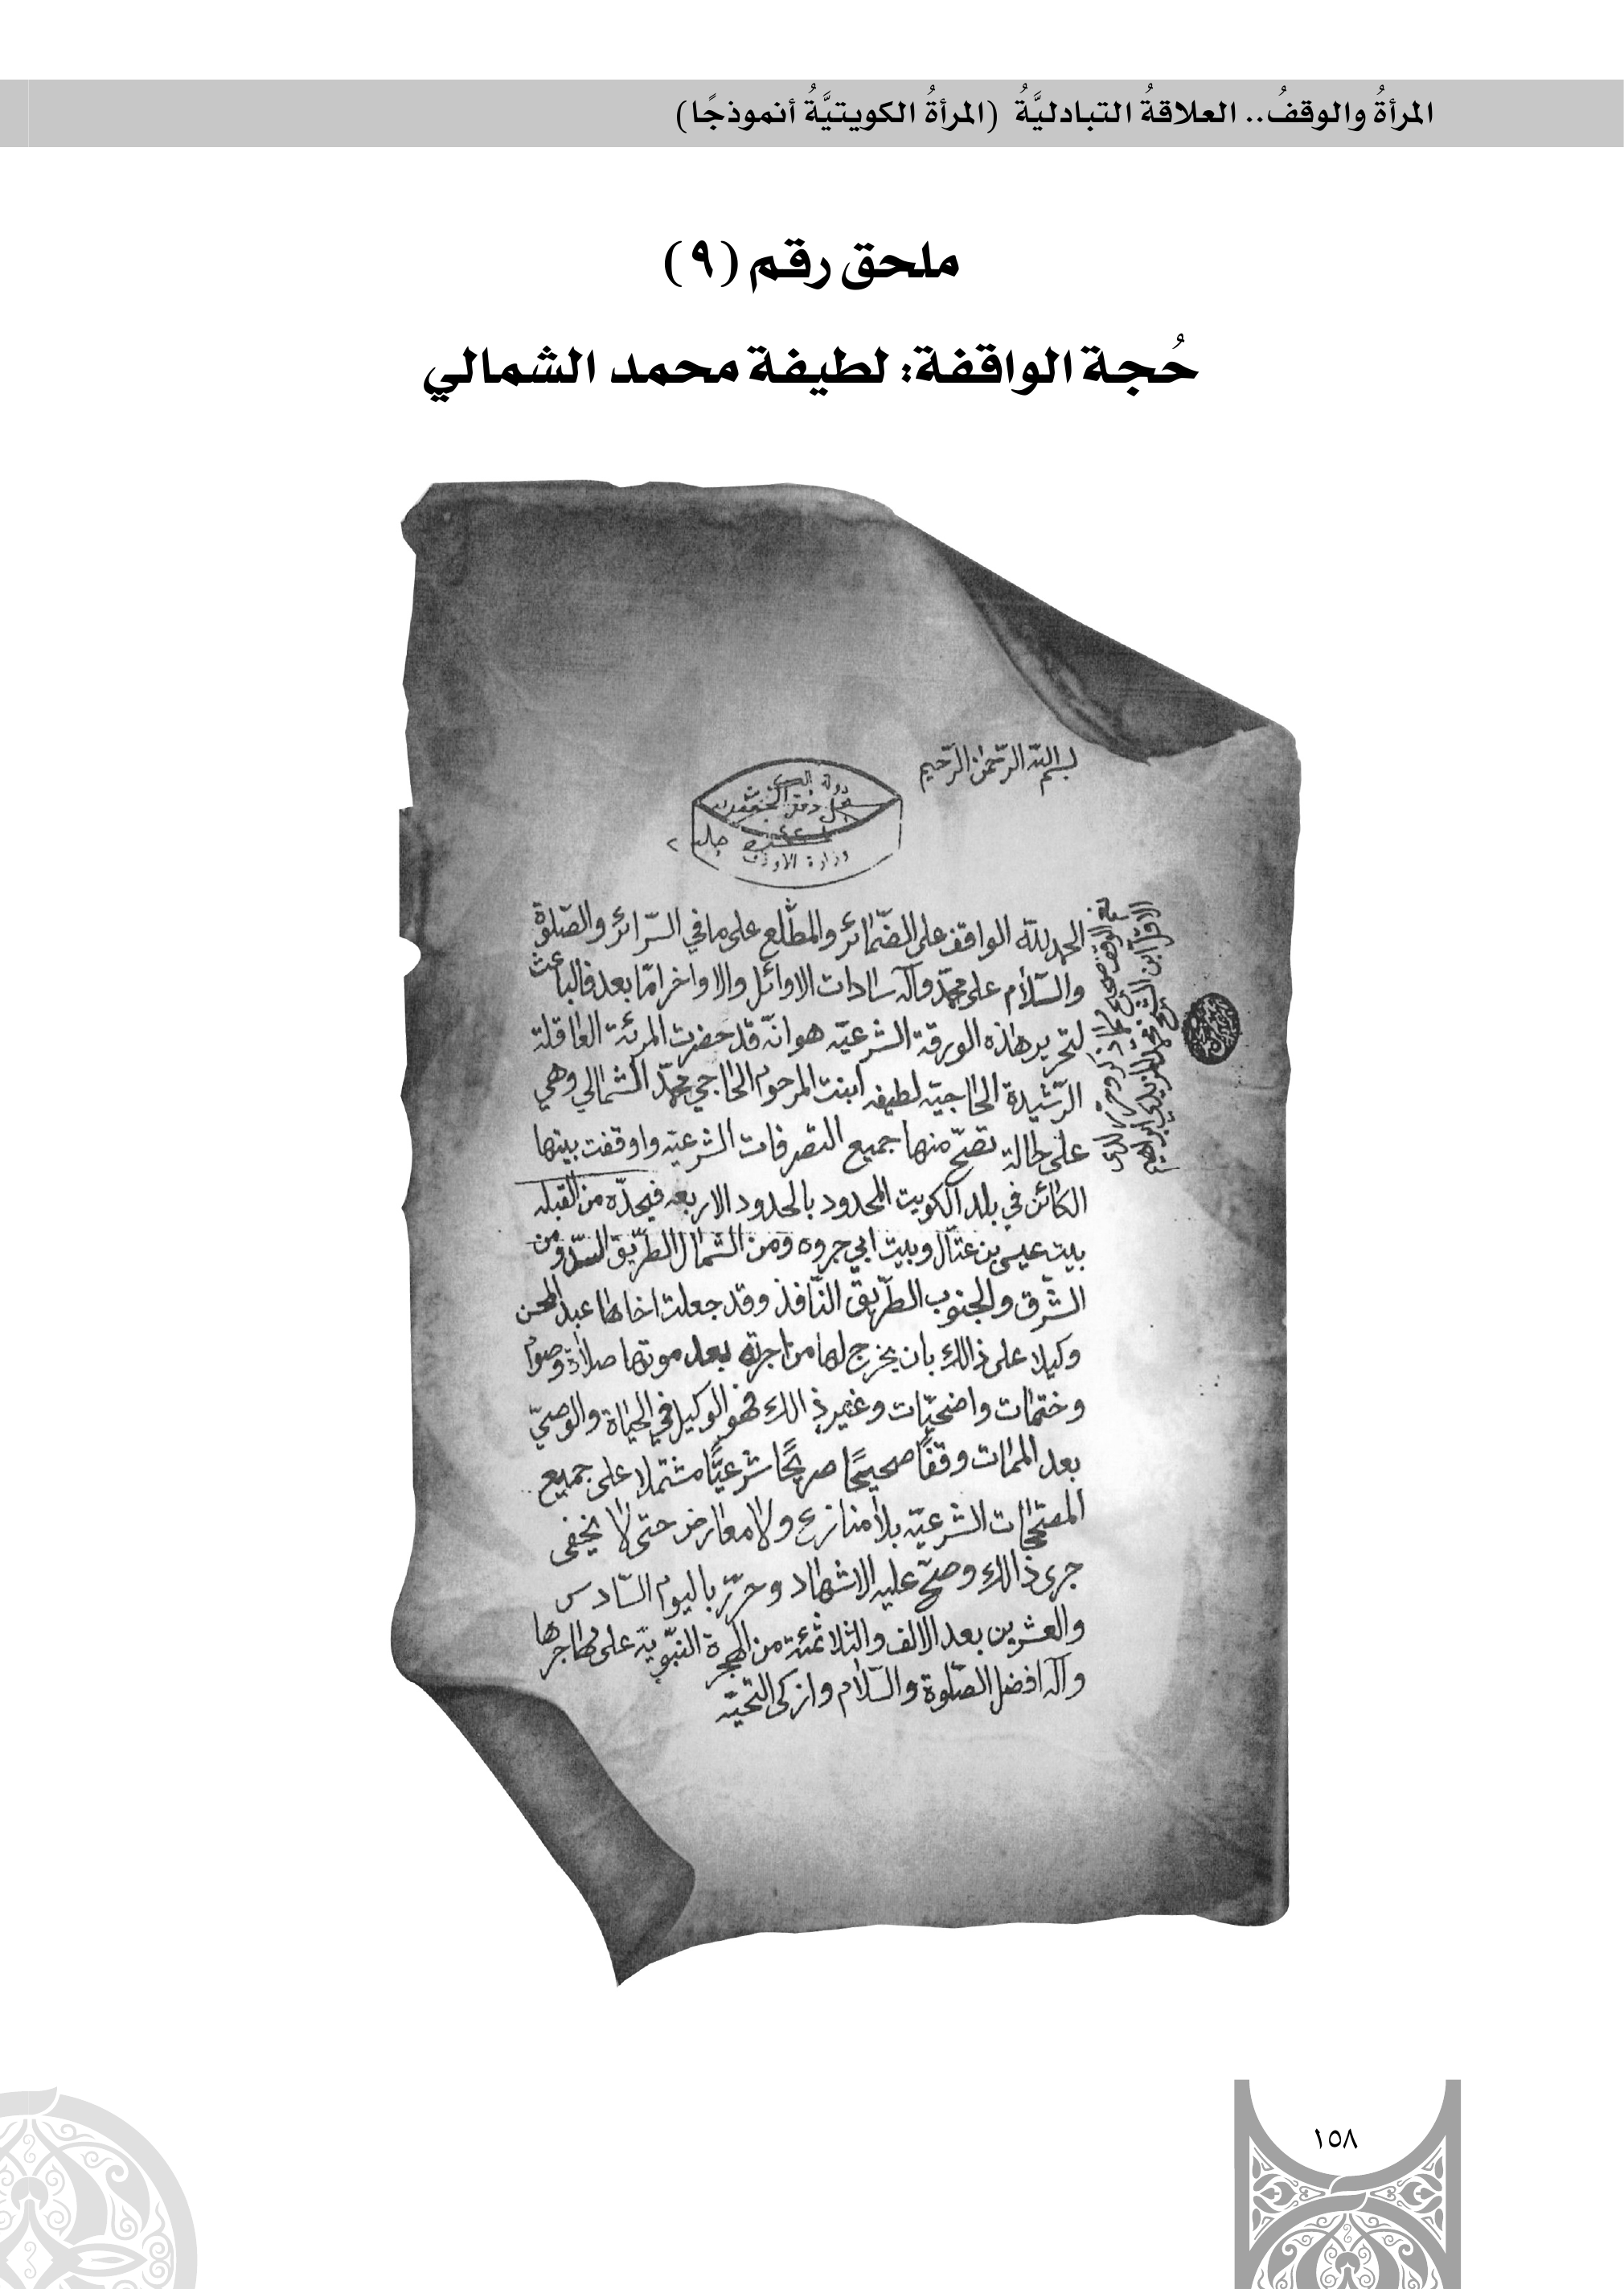 المرأةُ والوقفُ.. العلاقةُ التبادليَّةُ (المرأةُ الكويتيَّةُ أنموذجًا)
ملحق رقم (٩)
حُجة الواقفة: لطيفة محمد الشمالي
بسم الله الرّحمن الرّحيم
وزارة الاوقاف
الحمد لله الواقف على الضّمائر والمطّلع على ما في السّرائر والصّلوة
والسّلام على محمّد وآله سادات الاوائل والاواخر امّا بعد فالباعث
لتحرير هاذه الورقة الشرعيّه هو انّه قد حضرت المرئة العاقلة
الرّشيدة الحاجيّه لطيفه ابنت المرحوم الحاجي محمّد الشمالي وهي
على حالة تصحّ منها جميع التصرفات الشرعيّه واوقفت بيتها
الكائن في بلد الكويت المحدود بالحدود الاربعه فيحدّه من القبله
بيت عيسى بن عتال وبيت ابي جروه ومن الشمال الطّريق السّدّ ومن
الشّرق والجنوب الطّريق النّافذ وقد جعلت اخاها عبد المحسن
وكيلا على ذالك بان يخرج لها من اجرته بعد موتها صلاة وصوم
وختمات واضحيّات وغير ذالك فهو الوكيل في الحياة والوصيّ
بعد الممات وقفًا صحيحًا صريحًا شرعيًّا مشتملا على جميع
الشرعيّه بلا منازع ولا معارض حتى لا يخفى
جرى ذالك وصحّ عليه الاشهاد وحرّر باليوم السّادس
والعشرين بعد الالف والثلاثمئة من الهجرة النبّويّة على مهاجرها
وآله افضل الصّلوة والسّلام وازكى التحيّه
١٥٨